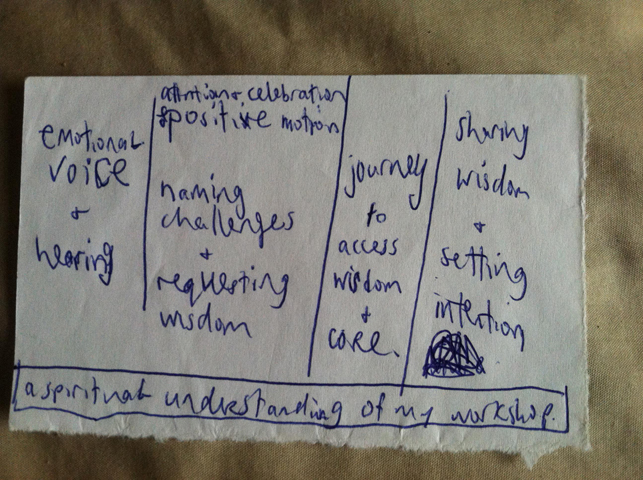 emotional
voice
+
hearing
attention + celebration
+ positive motion
naming
challenges
+
requesting
wisdom
journey
to
access
wisdom
+
core.
sharing
wisdom
+
setting
intention
a spiritual understanding of my workshop.